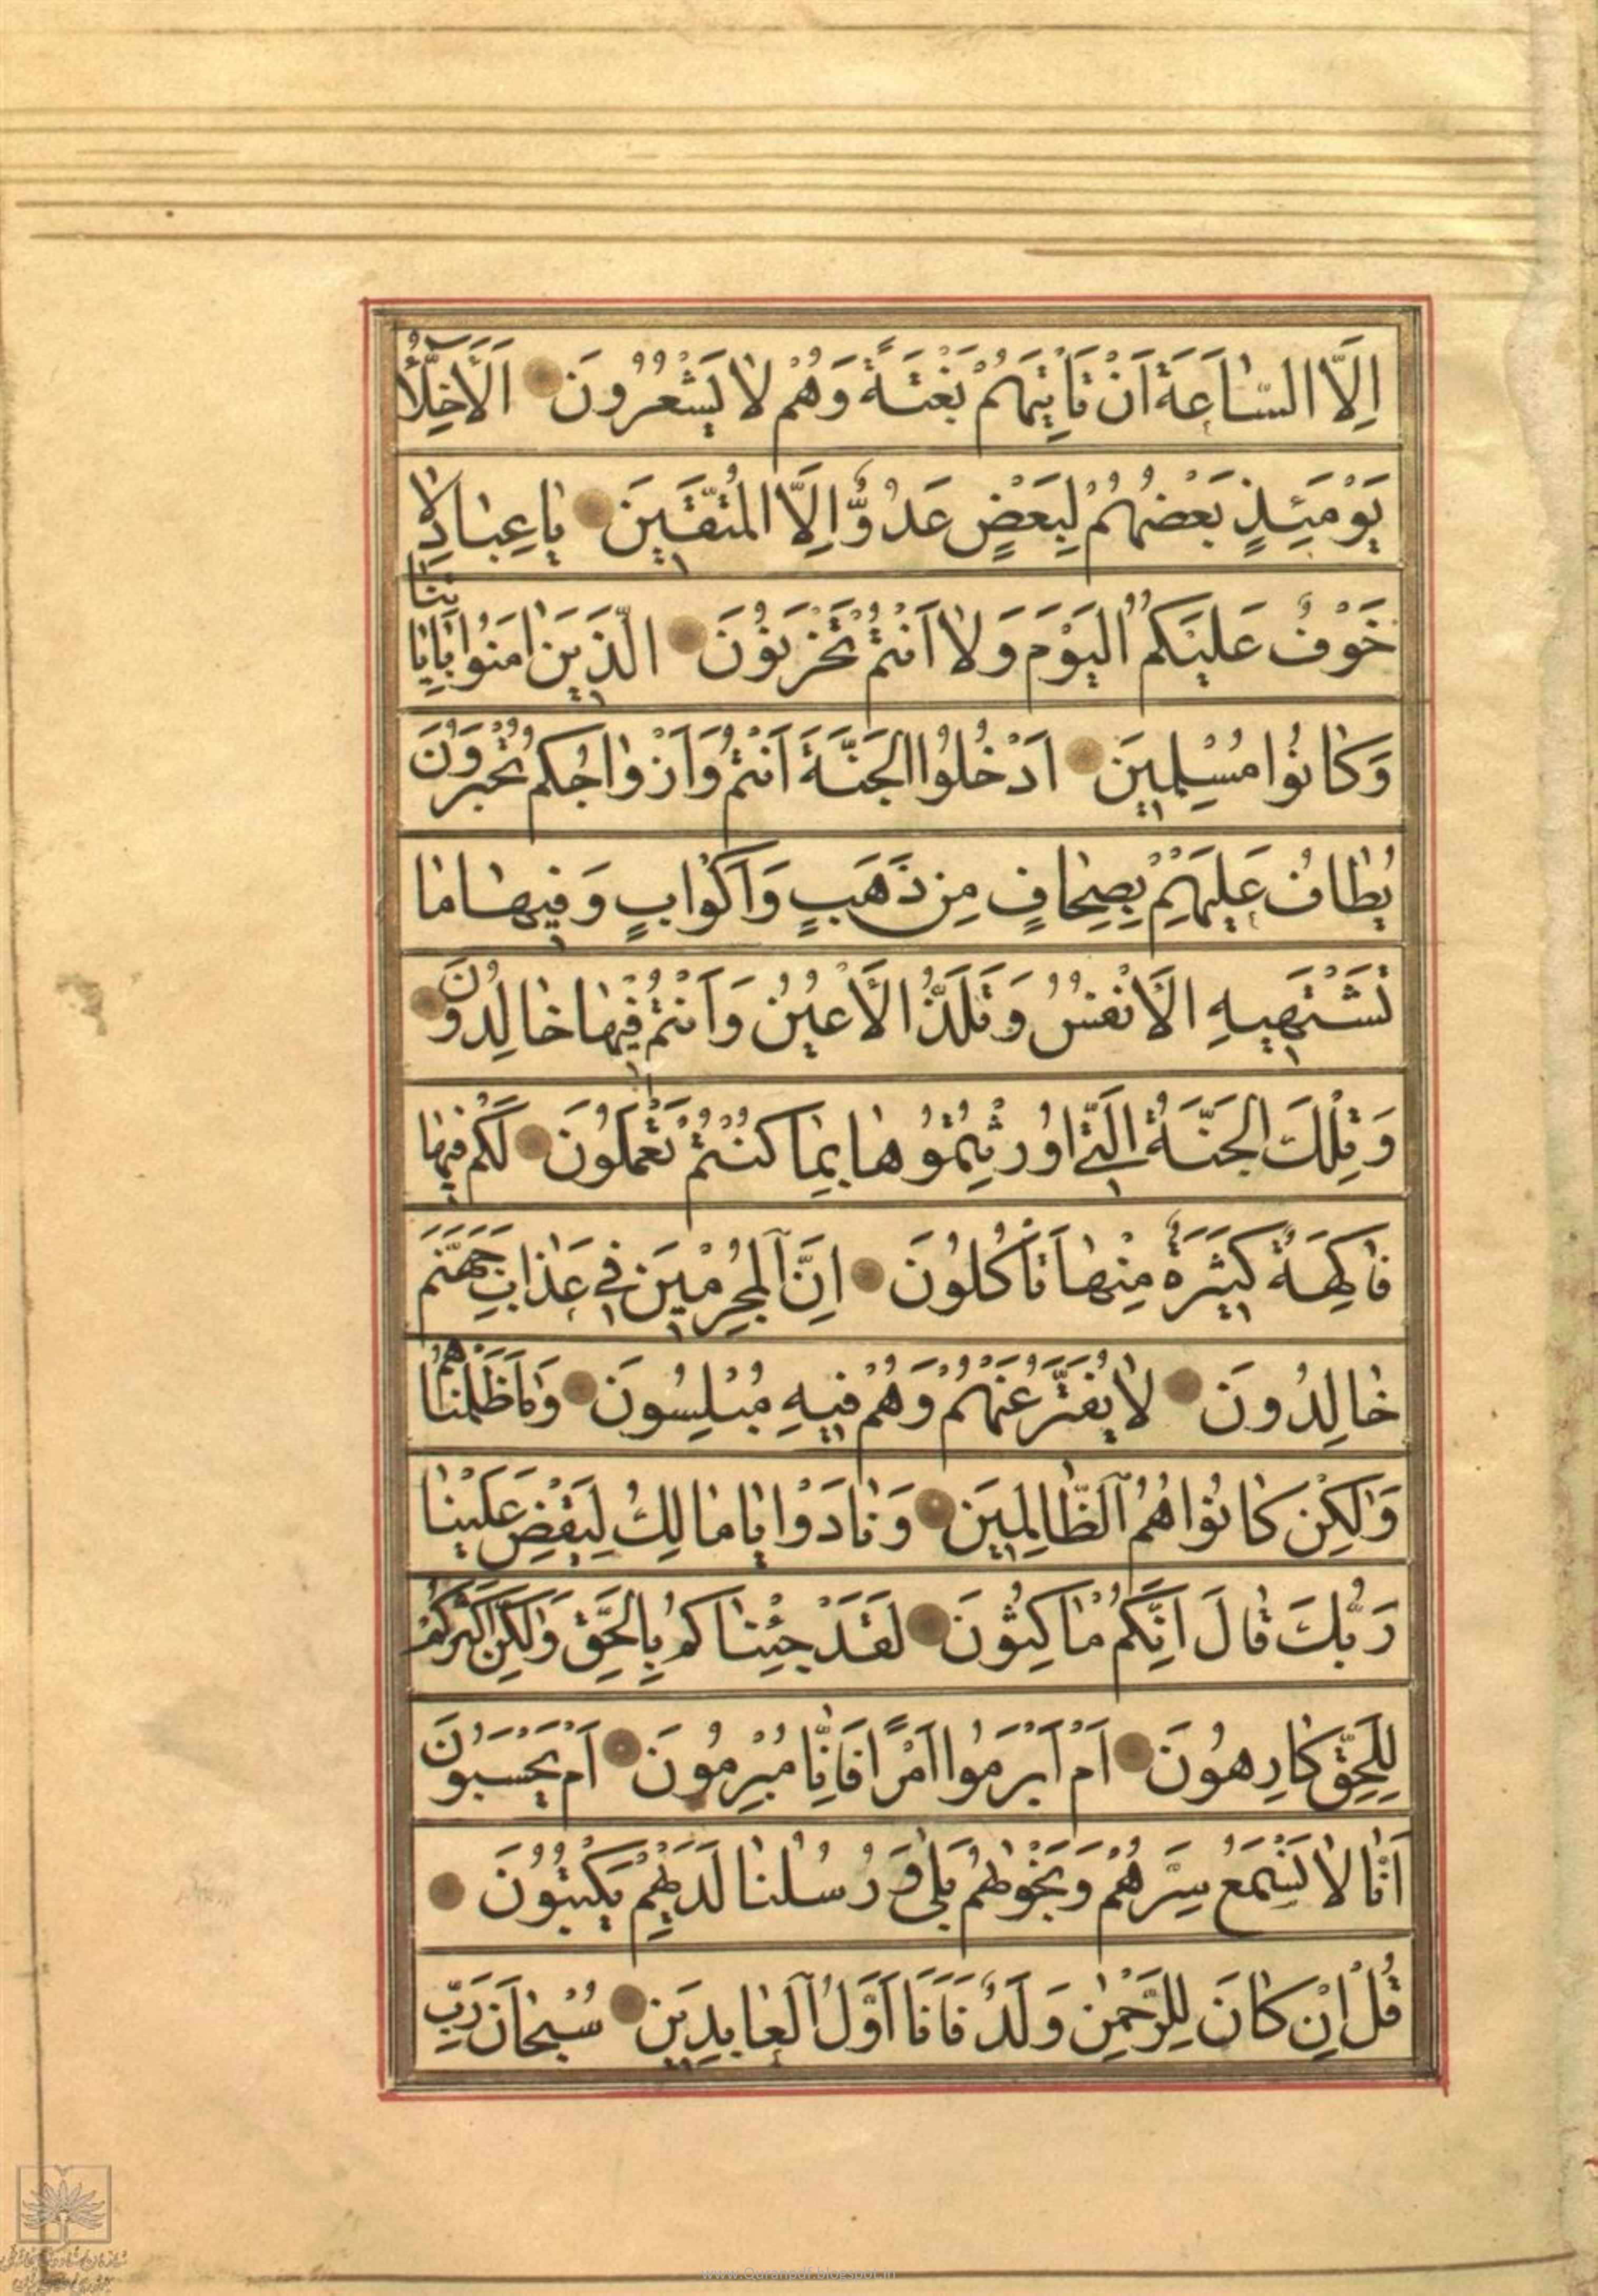 اِلَّا السّٰاعَةَ اَنْ تَاْتِيَهُمْ بَغْتَةً وَهُمْ لٰا يَشْعُرُونَ اَلْاَخِلّٰاۤءُ
يَوْمَئِذٍ بَعْضُهُمْ لِبَعْضٍ عَدُوٌّ اِلَّا الْمُتَّقِينَ يٰا عِبٰادِ لٰا
خَوْفٌ عَلَيْكُمُ الْيَوْمَ وَلٰا اَنْتُمْ تَحْزَنُونَ الَّذِينَ اٰمَنُوا بِاٰيٰاتِنٰا
وَكٰانُوا مُسْلِمِينَ اُدْخُلُوا الْجَنَّةَ اَنْتُمْ وَاَزْوٰاجُكُمْ تُحْبَرُونَ
يُطٰافُ عَلَيْهِمْ بِصِحٰافٍ مِنْ ذَهَبٍ وَاَكْوٰابٍ وَفِيهٰا مٰا
تَشْتَهِيهِ الْاَنْفُسُ وَتَلَذُّ الْاَعْيُنُ وَاَنْتُمْ فِيهٰا خٰالِدُونَ
وَتِلْكَ الْجَنَّةُ الَّتِي اُورِثْتُمُوهٰا بِمٰا كُنْتُمْ تَعْمَلُونَ لَكُمْ فِيهٰا
فٰاكِهَةٌ كَثِيرَةٌ مِنْهٰا تَاْكُلُونَ اِنَّ الْمُجْرِمِينَ فِي عَذٰابِ جَهَنَّمَ
خٰالِدُونَ لٰا يُفَتَّرُ عَنْهُمْ وَهُمْ فِيهِ مُبْلِسُونَ وَمٰا ظَلَمْنٰاهُمْ
وَلٰكِنْ كٰانُوا هُمُ الظّٰالِمِينَ وَنٰادَوْا يٰا مٰالِكُ لِيَقْضِ عَلَيْنٰا
رَبُّكَ قٰالَ اِنَّكُمْ مٰاكِثُونَ لَقَدْ جِئْنٰاكُمْ بِالْحَقِّ وَلٰكِنَّ اَكْثَرَكُمْ
لِلْحَقِّ كٰارِهُونَ اَمْ اَبْرَمُوا اَمْرًا فَاِنّٰا مُبْرِمُونَ اَمْ يَحْسَبُونَ
اَنّٰا لٰا نَسْمَعُ سِرَّهُمْ وَنَجْوٰيهُمْ بَلٰى وَرُسُلُنٰا لَدَيْهِمْ يَكْتُبُونَ
قُلْ اِنْ كٰانَ لِلرَّحْمٰنِ وَلَدٌ فَاَنَا اَوَّلُ الْعٰابِدِينَ سُبْحٰانَ رَبِّ
www.Quranpdf.blogspot.in